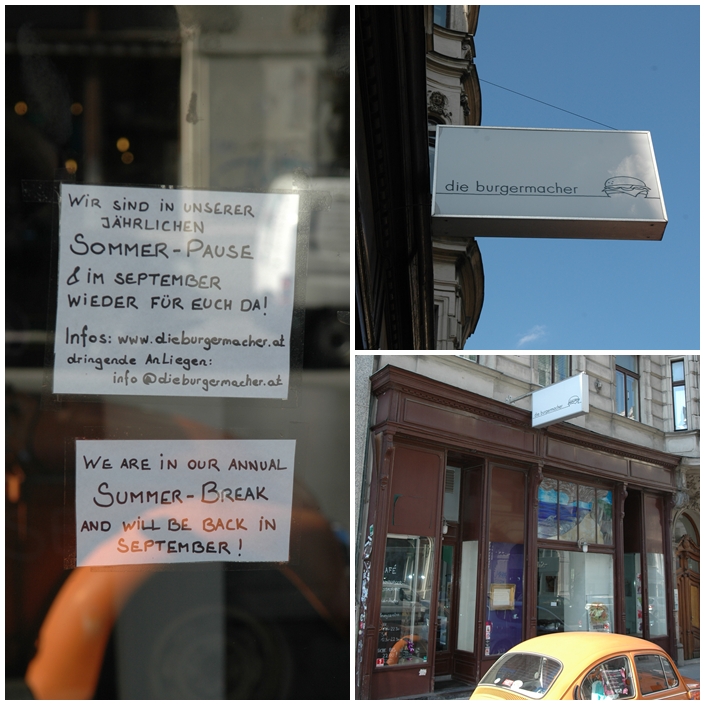 WIR SIND IN UNSERER
JÄHRLICHEN
SOMMER-PAUSE
& IM SEPTEMBER
WIEDER FÜR EUCH DA!
Infos: www.dieburgermacher.at
dringende Anliegen:
info@dieburgermacher.at
WE ARE IN OUR ANNUAL
SUMMER-BREAK
AND WILL BE BACK IN
SEPTEMBER!
die burgermacher
die burgermacher
CAFÉ